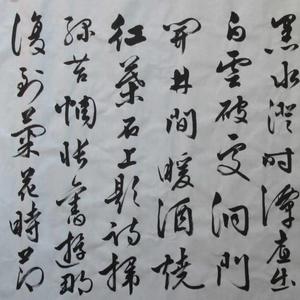 黑水澄時潭底出
白雲破處洞門
開林間暖酒燒
紅葉石上題詩掃
綠苔惆悵舊遊那
復到菊花時節